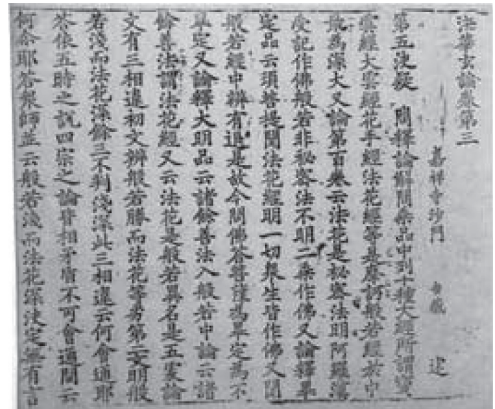 法華玄論卷第三
嘉祥寺沙門 吉藏
第五決疑 問釋論解問乘品中列十種大經所謂寶
雲經大雲經花手經法花經等是摩訶般若經於中
最為深大又論第百卷云法花是秘密法明阿羅漢
受記作佛般若非秘密法不明二乘作佛又論釋畢
定品云須菩提聞法花經明一切衆生皆作佛又聞
般若經中辨有退是故今問佛菩薩為畢定為不
畢定又論釋大明品云諸餘善法入般若中論云諸
餘善法謂法花經又云法花是般若異名是五處論
文有三相違初文辨般若勝而法花等劣第二文明般
若淺而法花深餘三不判淺深此三相違云何會通耶
答依五時之說四宗之論皆相矛盾不可會通問云
何余耶答舊師並云般若淺而法花深決定無有